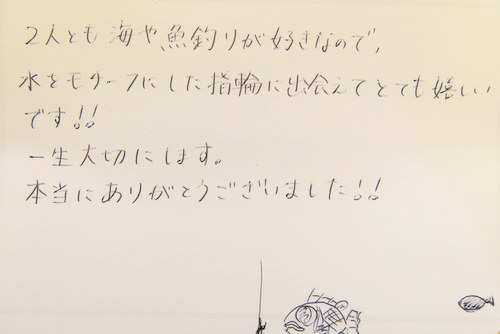 2人とも海や魚釣りが好きなので、
水をモチーフにした指輪に出会えてとても嬉しい
です!!
一生大切にします。
本当にありがとうございました!!